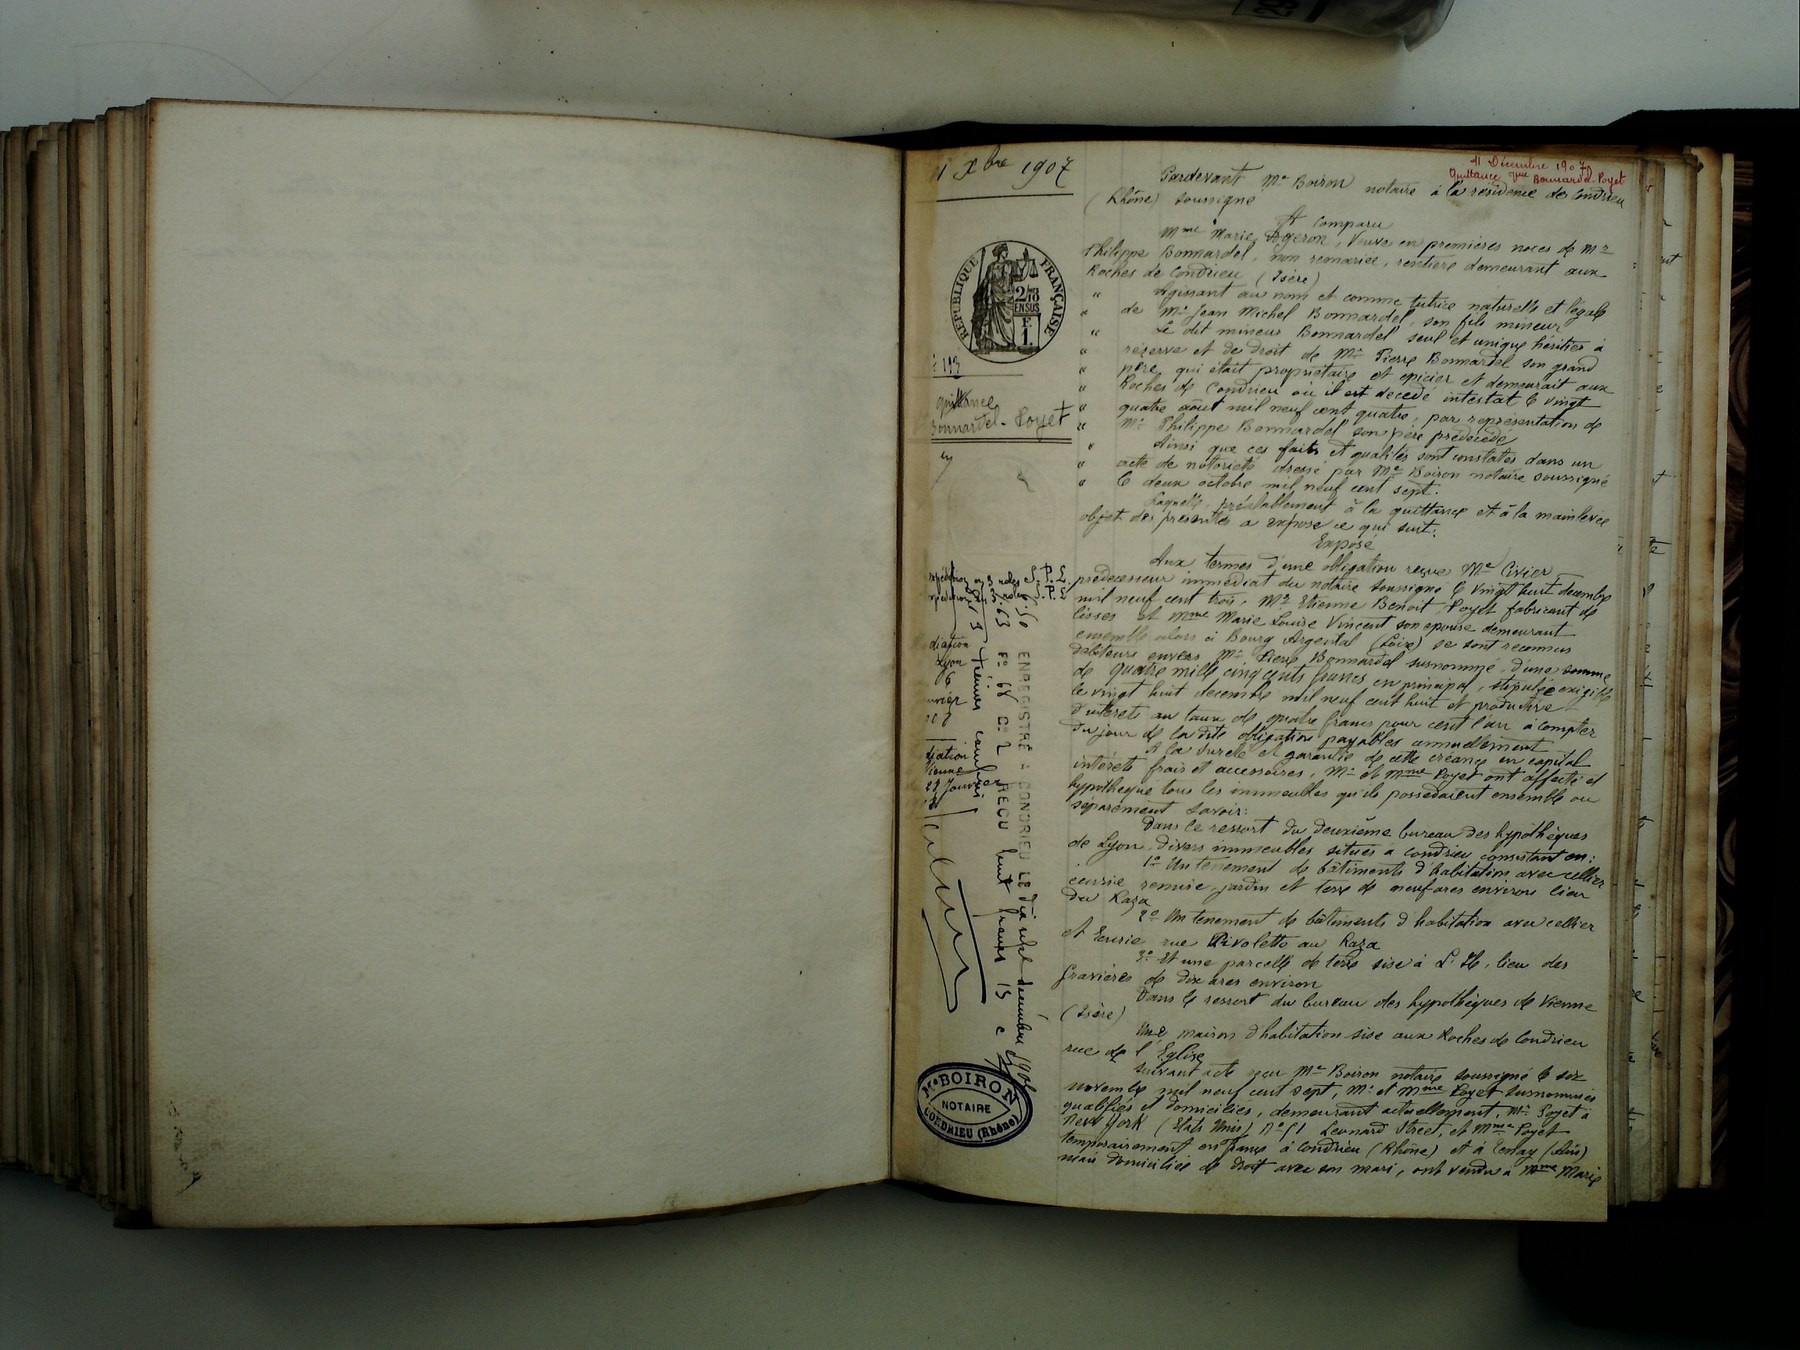 11 Xbre 1907
11 Décembre 1907
Quittance que Bonnardel-Poyet
Pardevant Me Boiron notaire à la résidence de Condrieu
(Rhône) soussigné
A comparu
Mme Marie Ogeron, Veuve en premières noces de Mr
Philippe Bonnardel, non remariée, rentière demeurant aux
Roches de Condrieu (Isère)
" Agissant au nom et comme tutrice naturelle et légale
" de Mr Jean Michel Bonnardel, son fils mineur
" Le dit mineur Bonnardel seul et unique héritier à
" réserve et de droit de Mr Pierre Bonnardel son grand
" père, qui était propriétaire et épicier et demeurait aux
" Roches de Condrieu où il est décédé intestat le vingt
" quatre août mil neuf cent quatre, par représentation de
" Mr Philippe Bonnardel son père prédécédé
" Ainsi que ces faits et qualités sont constatés dans un
" acte de notoriété dressé par Me Boiron notaire soussigné
" le deux octobre mil neuf cent sept.
Laquelle, préalablement à la quittance et à la mainlevée
objet des présentes a exposé ce qui suit:
Exposé
Aux termes d'une obligation reçue Me Civier
prédécesseur immédiat du notaire soussigné le vingt huit décembre
mil neuf cent trois, Mr Etienne Benoit Poyet fabricant de
lisses et Mme Marie Louise Vincent son épouse demeurant
ensemble alors à Bourg Argental (Loire) se sont reconnus
débiteurs envers Mr Pierre Bonnardel surnommé, d'une somme
de quatre mille cinq cents francs en principal, stipulée exigible
le vingt huit décembre mil neuf cent huit et productive
d'intérêts au taux de quatre francs pour cent l'an à compter
du jour de la dite obligation payables annuellement
A la sureté et garantie de cette créance en capital
intérêts frais et accessoires, Mr et Mme Poyet ont affecté et
hypothéqué tous les immeubles qu'ils possédaient ensemble ou
séparément savoir:
Dans le ressort du deuxième bureau des hypothèques
de Lyon, divers immeubles situés à Condrieu consistant en:
1° Un tenement de bâtiments d'habitation avec cellier
écurie remise, jardin et terre de neuf ares environ lieu
du Raza
2° Un tenement de bâtiments d'habitation avec cellier
et Ecurie rue Rivolette au Raza
3° Et une parcelle de terre sise à lieu des
Gravières de dix ares environ
Dans le ressort du bureau des hypothèques de Vienne
(Isère)
Une maison d'habitation sise aux Roches de Condrieu
rue de l'Eglise
Suivant acte reçu Me Boiron notaire soussigné le six
novembre mil neuf cent sept, Mr et Mme Poyet surnommés
qualifiés et domiciliés, demeurant actuellement, Mr Poyet à
New York (Etats Unis) N° 51 Leonard Street, et Mme Poyet
temporairement en France à Condrieu (Rhône) et à Tenay (Ain)
mais domiciliée de droit avec son mari, ont vendu à Mme Marie
REPUBLIQUE FRANÇAISE
2/10 EN SUS
F. 1.
Quittance
Bonnardel-Poyet
ENREGISTRÉ A CONDRIEU LE dix sept décembre 1907
F° 68 C° 2 REÇU huit francs 13 c
Me BOIRON
NOTAIRE
CONDRIEU (Rhône)